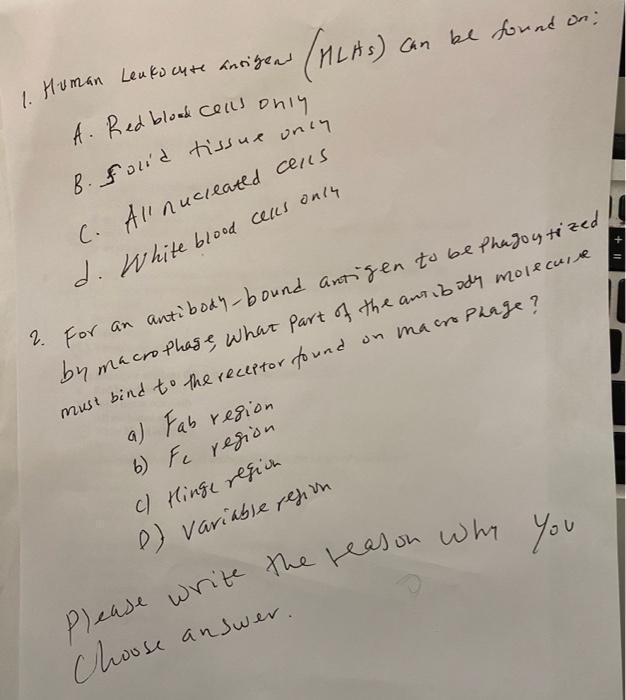 1. Human Leukocyte antigens (HLAs) can be found on:
A. Red blood cells only
B. Solid tissue only
C. All nucleated cells
d. White blood cells only
2. For an antibody-bound antigen to be phagocytized
by macrophage, what part of the antibody molecule
must bind to the receptor found on macrophage?
a) Fab region
b) Fc region
c) Hinge region
D) Variable region
Please write the reason why you
Choose answer.